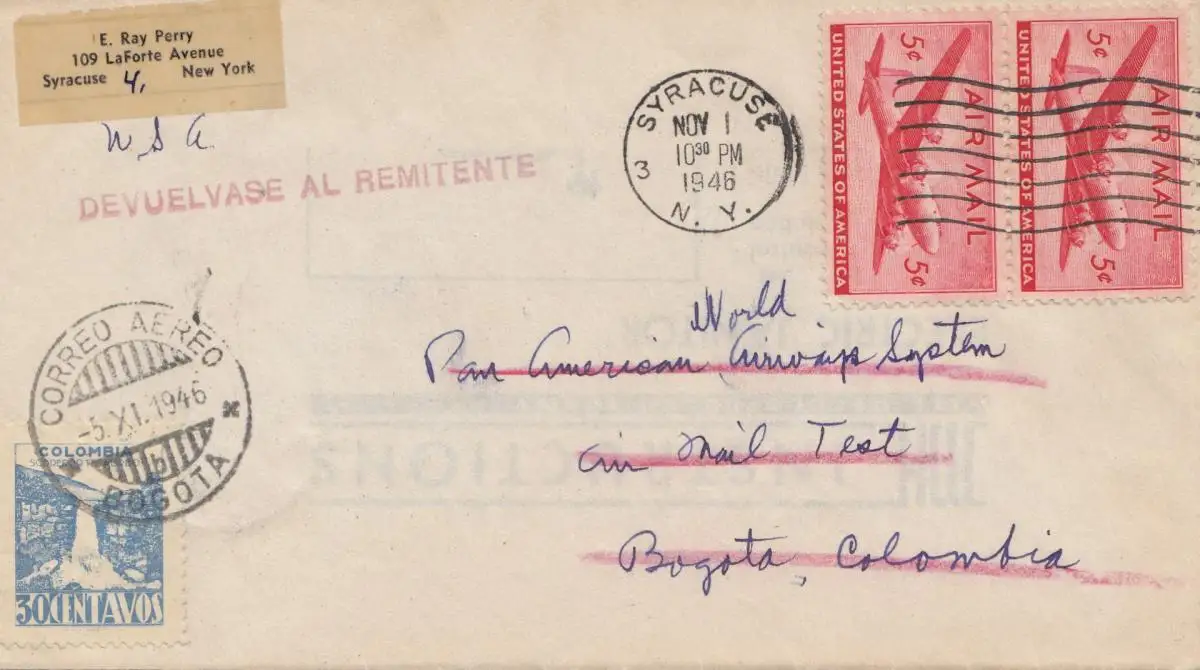 E. Ray Perry
109 LaForte Avenue
Syracuse 4, New York
U S A
DEVUELVASE AL REMITENTE
SYRACUSE
NOV 1
10³⁰ PM
1946
3
N. Y.
5¢
AIR MAIL
5¢
UNITED STATES OF AMERICA
5¢
AIR MAIL
5¢
UNITED STATES OF AMERICA
World
Pan American Airways System
Air Mail Test
Bogota, Colombia
CORREO AEREO
-5.XI.1946
BOGOTA
COLOMBIA
30 CENTAVOS